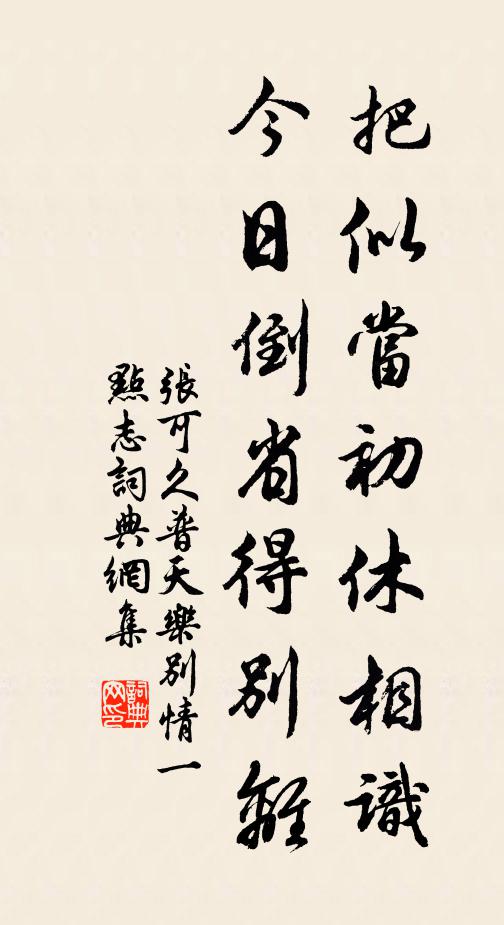 把似當初休相識
今日倒省得別離
張可久普天樂別情一
點志詞典網集
詞典
网印